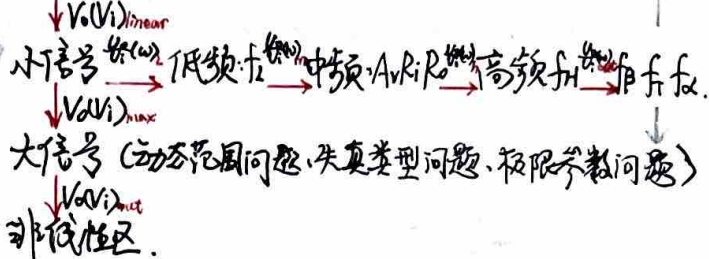 ↓Vo(Vi)linear
小信号 →低频:fL →中频:AvRiRo →高频fH →fβ fT fα.
↓Vo(Vi)max
大信号(动态范围问题、失真类型问题、极限参数问题)
↓Vo(Vi)out
非线性区.